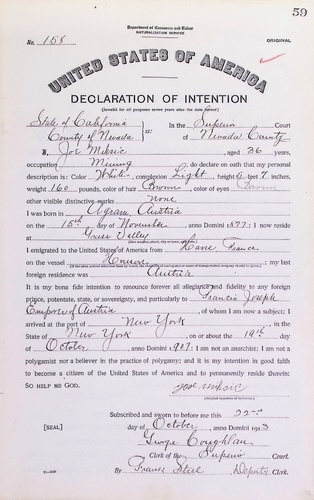 59
Department of Commerce and Labor
NATURALIZATION SERVICE
No. 158
ORIGINAL
UNITED STATES OF AMERICA
DECLARATION OF INTENTION
(Invalid for all purposes seven years after the date hereof)
State of California
County of Nevada ss:
In the Superior Court
of Nevada County
I, Joe , aged 36 years,
occupation Mining, do declare on oath that my personal
description is: Color White, complexion Light, height 5 feet 7 inches,
weight 160 pounds, color of hair Brown, color of eyes Brown
other visible distinctive marks none
I was born in , Austria
on the 15th day of November, anno Domini 1877; I now reside
at Grass Valley
I emigrated to the United States of America from Havre France
on the vessel ; my last
foreign residence was Austria
It is my bona fide intention to renounce forever all allegiance and fidelity to any foreign
prince, potentate, state, or sovereignty, and particularly to Francis Joseph
Emperor of Austria, of whom I am now a subject; I
arrived at the port of New York, in the
State of New York, on or about the 19th day
of October, anno Domini; I am not an anarchist; I am not a
polygamist nor a believer in the practice of polygamy; and it is my intention in good faith
to become a citizen of the United States of America and to permanently reside therein:
SO HELP ME GOD.
Subscribed and sworn to before me this 22nd
[SEAL] day of October, anno Domini 1913
George Coughlan
Clerk of the Superior Court.
By Steel Deputy Clerk.